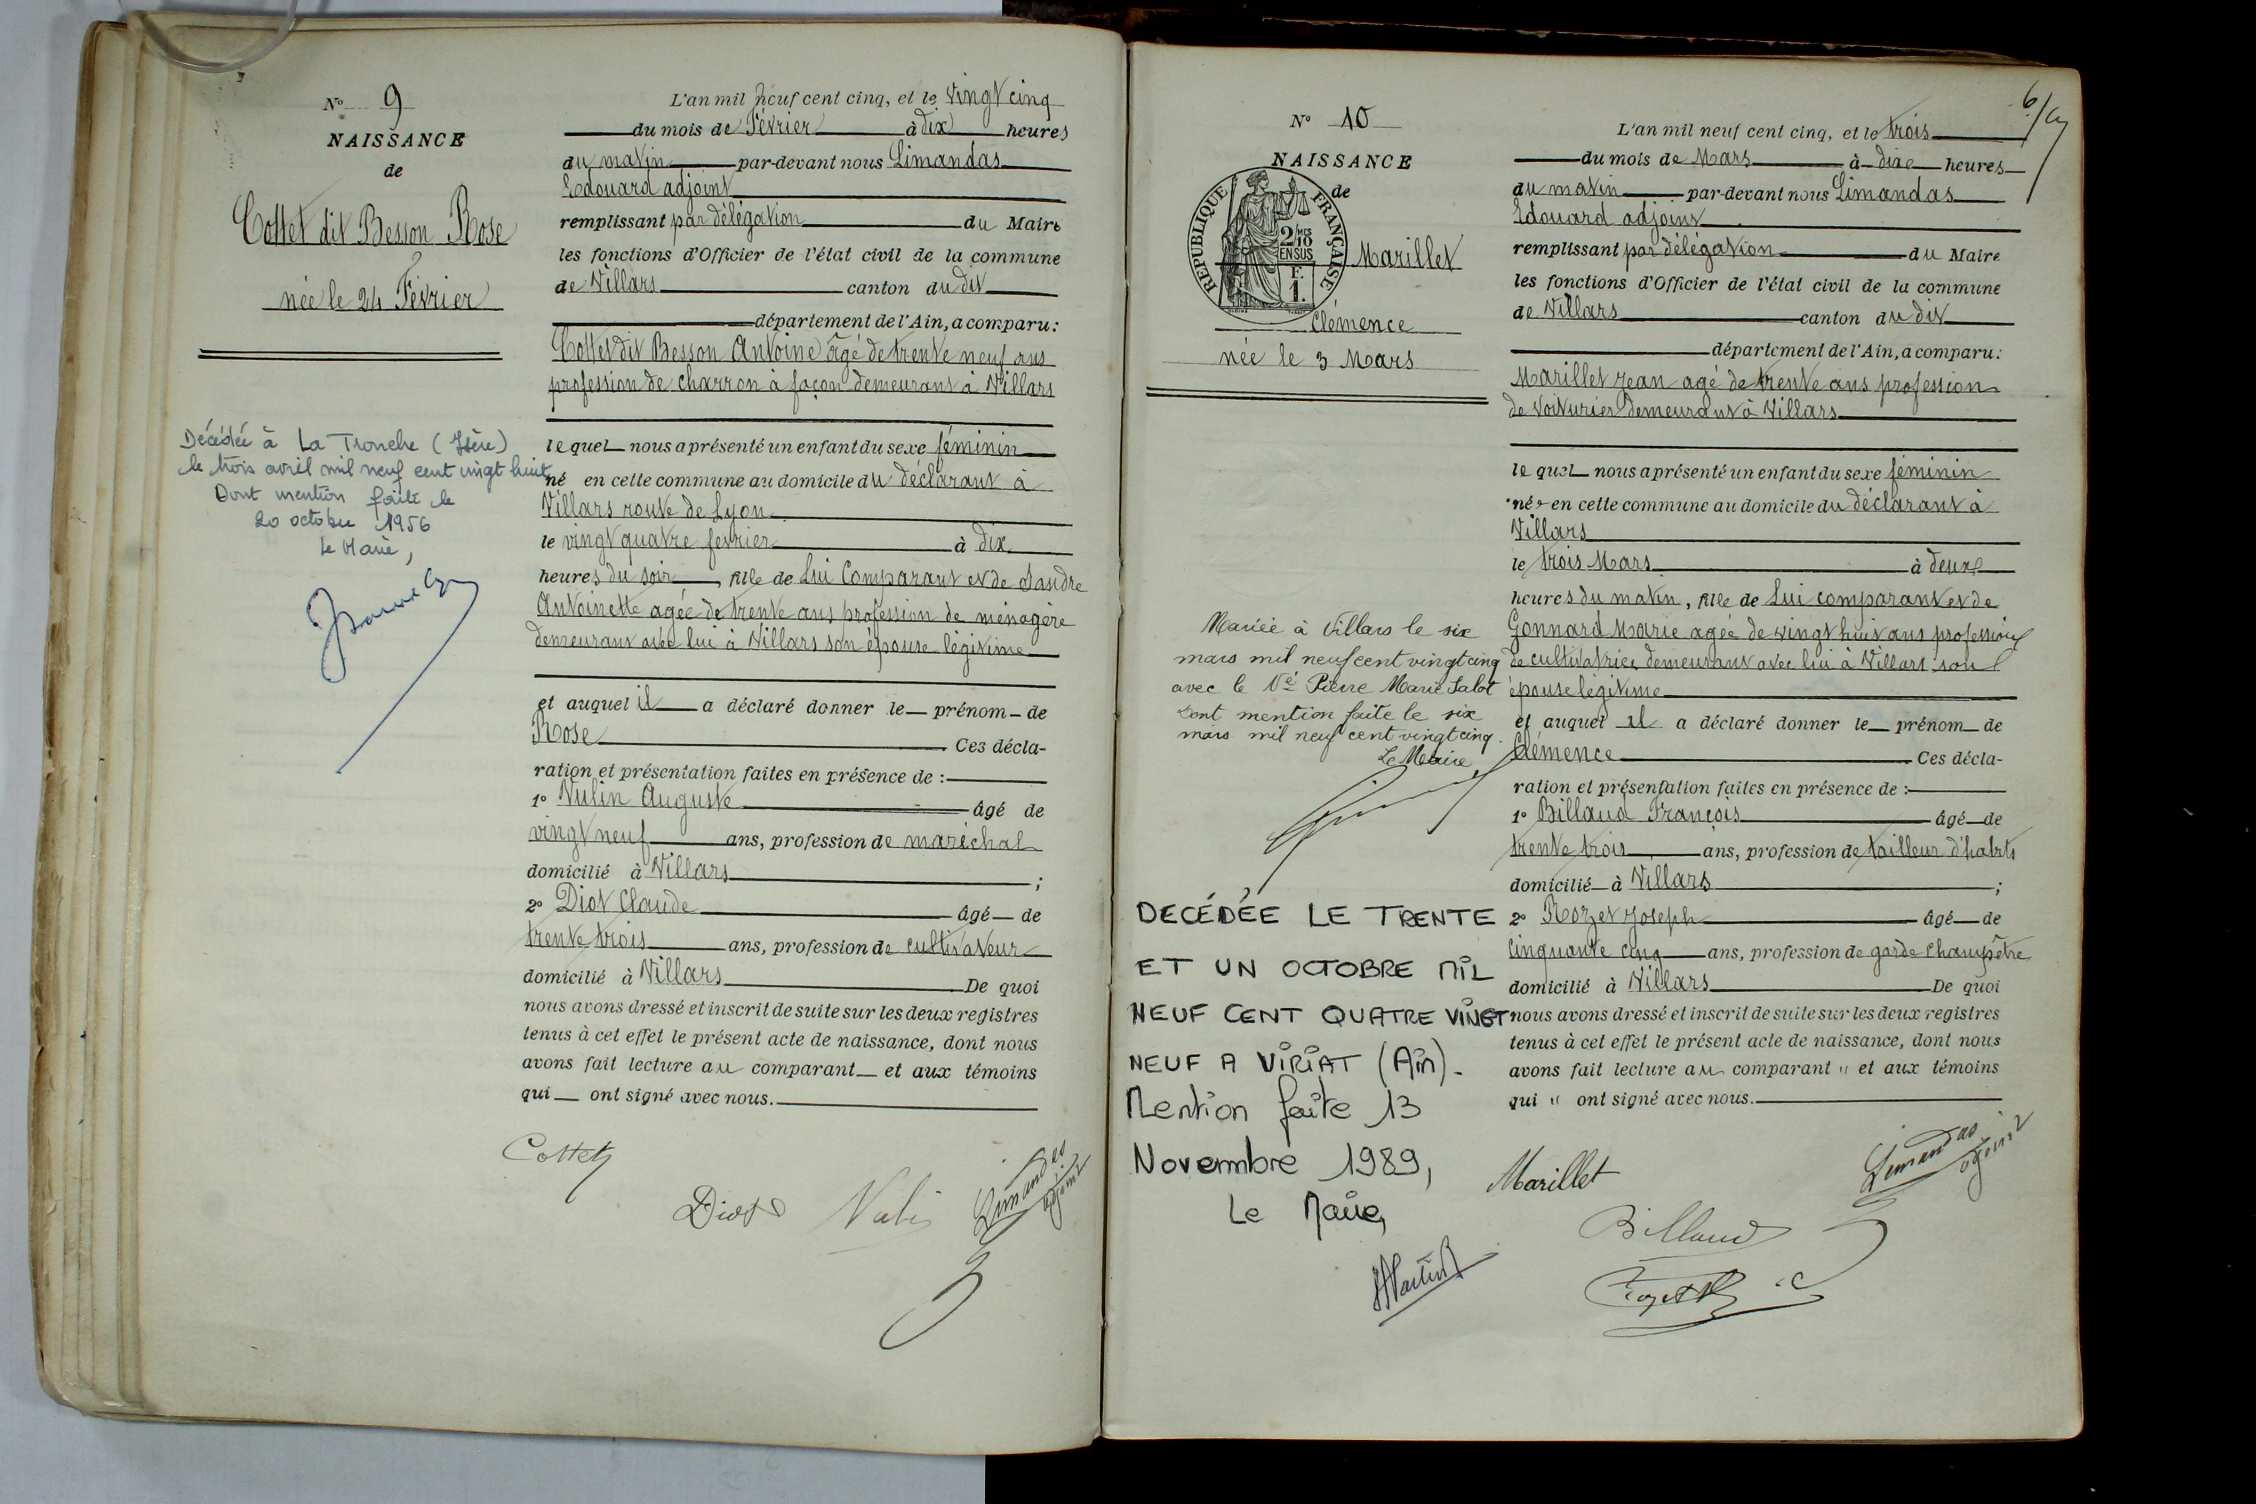 N° 9
NAISSANCE
de
Cottet dit Besson Rose
née le 24 Février
Décédée à La Tronche (Isère)
le trois avril mil neuf cent vingt huit
Dont mention faite le
20 octobre 1956
Le Maire,
L'an mil neuf cent cinq, et le vingt cinq
du mois de Février à dix heures
du matin par-devant nous Limandas
Edouard adjoint
remplissant par délégation du Maire
les fonctions d'Officier de l'état civil de la commune
de Villars canton du dit
département de l'Ain, a comparu:
Cottet dit Besson Antoine âgé de trente neuf ans
profession de charron à façon demeurant à Villars
lequel nous a présenté un enfant du sexe féminin
né en cette commune au domicile du déclarant à
Villars route de Lyon
le vingt quatre fevrier à dix
heures du soir, fille de Lui Comparant et de Sandre
Antoinette agée de trente ans profession de ménagère
demeurant avec lui à Villars son épouse légitime
et auquel il a déclaré donner le prénom de
Rose Ces décla-
ration et présentation faites en présence de :
1° Vulin Auguste âgé de
vingt neuf ans, profession de maréchal
domicilié à Villars ;
2° Diot Claude âgé de
trente trois ans, profession de cultivateur
domicilié à Villars De quoi
nous avons dressé et inscrit de suite sur les deux registres
tenus à cet effet le présent acte de naissance, dont nous
avons fait lecture au comparant et aux témoins
qui ont signé avec nous.
Cottet
Diot Vulin Limandas
adjoint
6/
N° 10
NAISSANCE
de
REPUBLIQUE FRANÇAISE
2/10 MES
EN SUS
F.
1.
Marillet
Clémence
née le 3 Mars
Mariée à Villars le six
mars mil neuf cent vingt cinq
avec le Né Pierre Marie Salot
Dont mention faite le six
mars mil neuf cent vingt cinq.
Le Maire,
DECÉDÉE LE TRENTE
ET UN OCTOBRE MIL
NEUF CENT QUATRE VINGT
NEUF A VIRIAT (Ain).
Mention faite 13
Novembre 1989,
Le Maire,
L'an mil neuf cent cinq, et le trois
du mois de Mars à dix heures
du matin par-devant nous Limandas
Edouard adjoint
remplissant par délégation du Maire
les fonctions d'Officier de l'état civil de la commune
de Villars canton du dit
département de l'Ain, a comparu:
Marillet Jean agé de trente ans profession
de Voiturier demeurant à Villars
lequel nous a présenté un enfant du sexe féminin
née en cette commune au domicile du déclarant à
Villars
le trois Mars à deux
heures du matin, fille de Lui comparant et de
Gonnard Marie agée de vingt huit ans profession
de cultivatrice demeurant avec lui à Villars son
épouse légitime
et auquel il a déclaré donner le prénom de
Clémence Ces décla-
ration et présentation faites en présence de :
1° Billaud François âgé de
trente trois ans, profession de tailleur d'habits
domicilié à Villars ;
2° Rozet Joseph âgé de
cinquante cinq ans, profession de garde champêtre
domicilié à Villars De quoi
nous avons dressé et inscrit de suite sur les deux registres
tenus à cet effet le présent acte de naissance, dont nous
avons fait lecture au comparant " et aux témoins
qui " ont signé avec nous.
Marillet Limandas
adjoint
Billaud